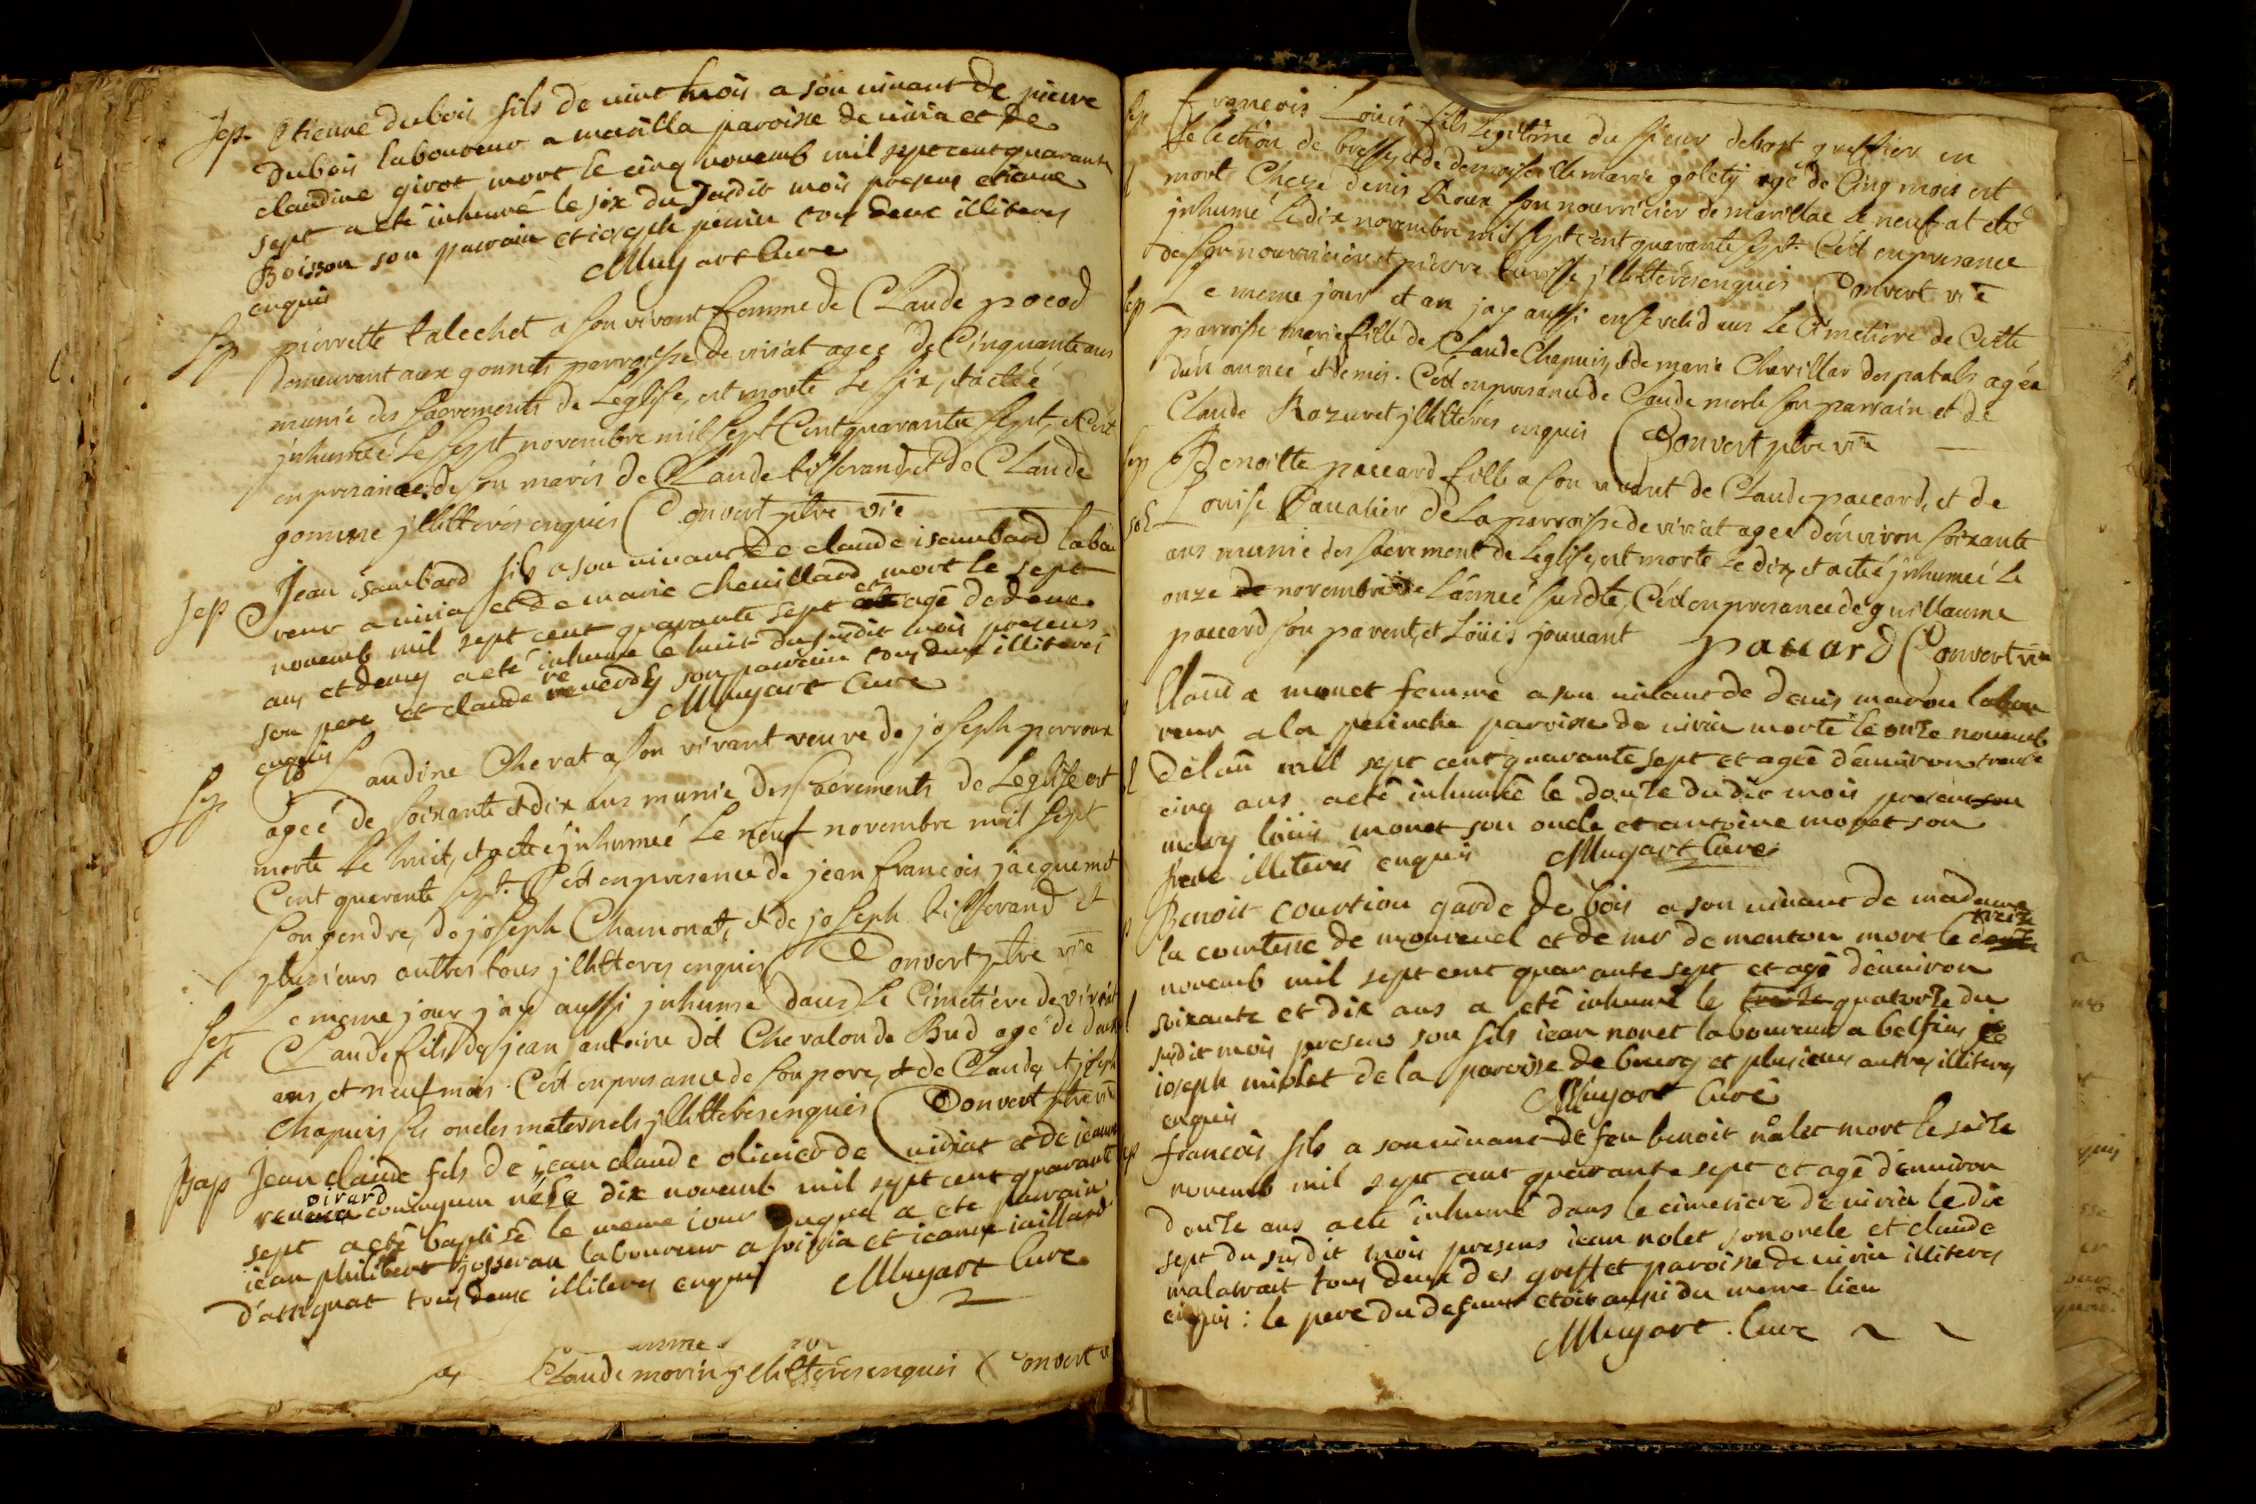 Sep Etienne dubois fils de vint mois a son vivant de pierre
Dubois laboureur a marilla paroisse de viria et de
claudine givot mort le cinq novemb mil sept cent quarante
sept a eté inhumé le six du susdit mois presens etienne
Boisson son parrain et joseph tous deux illiteres
enquis Mugart Cure
Sep pierrette talechet a son vivant femme de Claude pocod
demeurant aux gonnets parroisse de viriat agee de Cinquante ans
munie des sacrements de Leglise, est morte le six, et a eté
jnhumeé Le sept novembre mil sept Cent quarante sept, C'est
en presance de son maris de Claude tisserand, et de Claude
gomme jllitterés enquis Convert ptre vre
Sep Jean isambard fils a son vivant de claude isambard labou
reur a viria et de marie chevillard mort le sept
novemb mil sept cent quarante sept et agé de deux
ans et demy a eté inhumé le huit du susdit mois presens
son pere et claude son parrain tous deux illiteres
enquis Mugart Cure
Sep Claudine Chevat a son vivant veuve de joseph perroux
ageé de soixante et dix ans munie des sacrements de Leglise est
morte le huit, et a eté jnhumeé Le neuf novembre mil sept
Cent quarante sept. C'est en presence de jean francois jacquemet
son gendre, de joseph Chamonat, et de joseph tisserand et
plusieurs autres tous jllitteres enquis Convert ptre vre
Sep Le meme jour j'ay aussi jnhumé dans le Cimetiére de viriat
Claude fils de jean antoine dit Chevalon de Bud agé de deux
ans, et neuf mois. C'est en presance de son pere, et de Claude, et joseph
Chapuis ses oncles maternels jllitteres enquis Convert ptre vre
Bap Jean claude fils de jean claude olivier de viriat et de jeanne
oirard
né le dix novemb mil sept cent quarante
sept a eté baptisé le meme jour a eté parrain
jean philibert josseran laboureur a viria et jeanne jaillard
d'attignat tous deux illiteres enquis Mugart Cure
Claude morin jllitteres enquis Convert
Sep Francois Loüis fils Legitime du sieur debost greffier en
Lelection de bresse, et de demoiselle marie golety agé de Cinq mois est
mort Chez denis Roux son nourricier de marillac le neuf at eté
jnhumé Le dix novembre mil sept cent quarante sept. C'est en presance
de son nourricier et pierre jllitteres enquis Convert vre
Sep Le meme jour et an jay aussi enseveli dans Le Cimetiére de Cette
parroisse marie fille de Claude Chapuis, et de marie Chevillar des patals agée
d'un anneé et demis. C'est en presance de Claude merle son parrain et de
Claude Razuret jllitteres enquis Convert ptre vre
Sep Benoitte paccard fille a son vivant de Claude paccard, et de
Louise de La parroisse de viriat agee d'environ soixante
ans munie des sacrement de Leglise, est morte le dix, et a eté jnhumeé le
onze de novembre de Lanneé susdte, C'est en presance de guillaume
paccard son parent, et Loüis jouvant paccard Convert vre
Claude monet femme a son vivant de denis marou labou
reur a la perinche paroisse de viria morte le onze novemb
de l'an mil sept cent quarante sept et agee d'environ trente
cinq ans a eté inhumée le douze dudit mois presens son
mary loüis monet son oncle et antoine monet son
frere illiteres enquis Mugart Cure
Benoit courtiou garde de bois a son vivant de madame
la comtesse de montrevel et de mr de menton mort le treize
novemb mil sept cent quarante sept et agé d'environ
soixante et dix ans a eté inhumé le treize quatorze du
susdit mois presens son fils jean nonet laboureur a belfins
joseph miblet de la paroisse de bourg et plusieurs autres illiteres
enquis Mugart Curé
Sep francois fils a son vivant de feu benoit nolet mort le seize
novemb mil sept cent quarante sept et agé d'environ
douze ans a eté inhumé dans le cimetiere de viria le dix
sept du susdit mois presens jean nolet son oncle et claude
malatrait tous deux des greffet paroisse de viria illiteres
enquis: le pere du defunt etoit aussi du meme lieu
Mugart. Cure